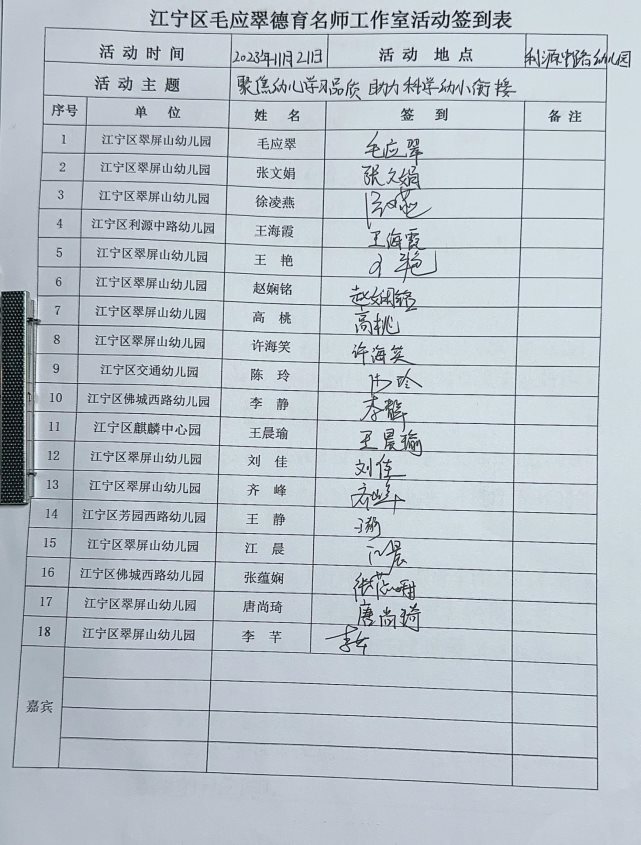 江宁区毛应翠德育名师工作室活动签到表
活动时间 2023年11月21日 活动地点 利源中路幼儿园
活动主题 聚焦幼儿学习品质 助力科学幼小衔接
序号 单位 姓名 签到 备注
1 江宁区翠屏山幼儿园 毛应翠 毛应翠
2 江宁区翠屏山幼儿园 张文娟 张文娟
3 江宁区翠屏山幼儿园 徐凌燕
4 江宁区利源中路幼儿园 王海霞 王海霞
5 江宁区翠屏山幼儿园 王艳
6 江宁区翠屏山幼儿园 赵娴铭 赵娴铭
7 江宁区翠屏山幼儿园 高桃 高桃
8 江宁区翠屏山幼儿园 许海笑 许海笑
9 江宁区交通幼儿园 陈玲 陈玲
10 江宁区佛城西路幼儿园 李静 李静
11 江宁区麒麟中心园 王晨瑜 王晨瑜
12 江宁区翠屏山幼儿园 刘佳 刘佳
13 江宁区翠屏山幼儿园 齐峰 齐峰
14 江宁区芳园西路幼儿园 王静
15 江宁区翠屏山幼儿园 江晨 江晨
16 江宁区佛城西路幼儿园 张蕴娴 张蕴娴
17 江宁区翠屏山幼儿园 唐尚琦 唐尚琦
18 江宁区翠屏山幼儿园 李芊 李芊
嘉宾